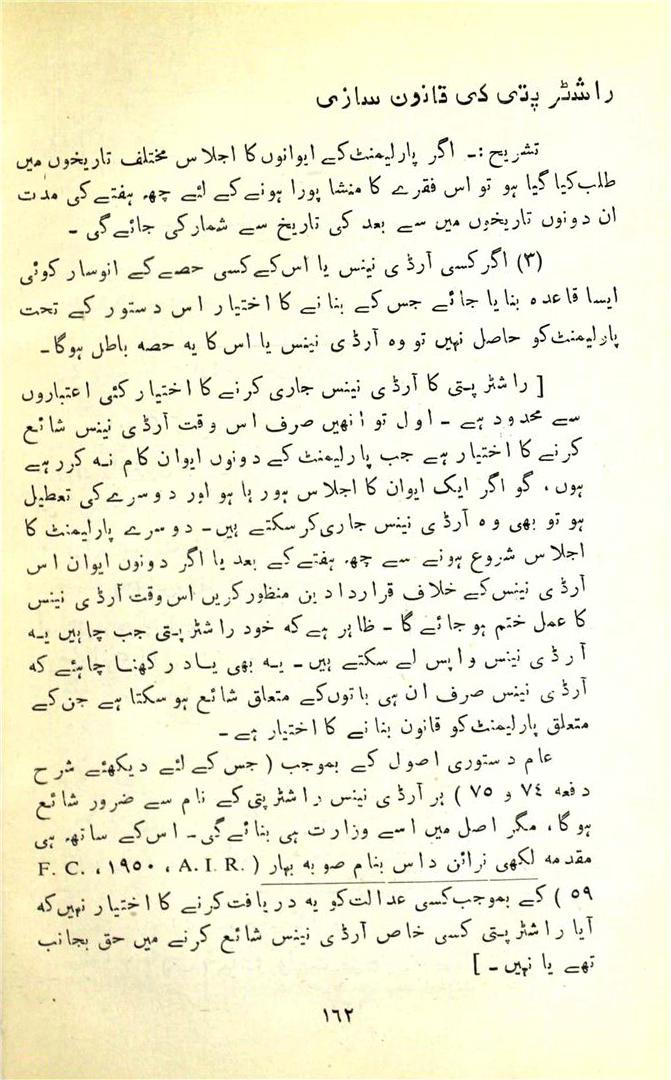 راشٹر پتی کی قانون سازی
تشریح :۔ اگر پارلیمنٹ کے ایوانوں کا اجلاس مختلف تاریخوں میں
طلب کیا گیا ہو تو اس فقرے کا منشا پورا ہونے کے لئے چھہ ہفتے کی مدت
ان دونوں تاریخوں میں سے بعد کی تاریخ سے شمار کی جائے گی ۔
(۳) اگر کسی آرڈی نینس یا اس کے کسی حصے کے انوسار کوئی
ایسا قاعدہ بنایا جائے جس کے بنانے کا اختیار اس دستور کے تحت
پارلیمنٹ کو حاصل نہیں تو وہ آرڈی نینس یا اس کا یہ حصہ باطل ہوگا۔
[ راشٹر پتی کا آرڈی نینس جاری کرنے کا اختیار کئی اعتباروں
سے محدود ہے ۔ اول تو انھیں صرف اس وقت آرڈی نینس شائع
کرنے کا اختیار ہے جب پارلیمنٹ کے دونوں ایوان کام نہ کر رہے
ہوں، گو اگر ایک ایوان کا اجلاس ہو رہا ہو اور دوسرے کی تعطیل
ہو تو بھی وہ آرڈی نینس جاری کر سکتے ہیں۔ دوسرے پارلیمنٹ کا
اجلاس شروع ہونے سے چھہ ہفتے کے بعد یا اگر دونوں ایوان اس
آرڈی نینس کے خلاف قرار دادیں منظور کریں اس وقت آرڈی نینس
کا عمل ختم ہو جائے گا ۔ ظاہر ہے کہ خود راشٹر پتی جب چاہیں یہ
آرڈی نینس واپس لے سکتے ہیں ۔ یہ بھی یاد رکھنا چاہئے کہ
آرڈی نینس صرف ان ہی باتوں کے متعلق شائع ہو سکتا ہے جن کے
متعلق پارلیمنٹ کو قانون بنانے کا اختیار ہے ۔
عام دستوری اصول کے بموجب ( جس کے لئے دیکھئے شرح
دفعہ ۷۴ و ۷۵ ) ہر آرڈی نینس راشٹر پتی کے نام سے ضرور شائع
ہوگا، مگر اصل میں اسے وزارت ہی بنائے گی ۔ اس کے ساتھ ہی
مقدمہ لکھی نرائن داس بنام صوبہ بہار ( .F. C. ، ۱۹۵۰ ، A. I. R
۵۹ ) کے بموجب کسی عدالت کو یہ دریافت کرنے کا اختیار نہیں کہ
آیا راشٹر پتی کسی خاص آرڈی نینس شائع کرنے میں حق بجانب
تھے یا نہیں ۔ ]
۱۶۲